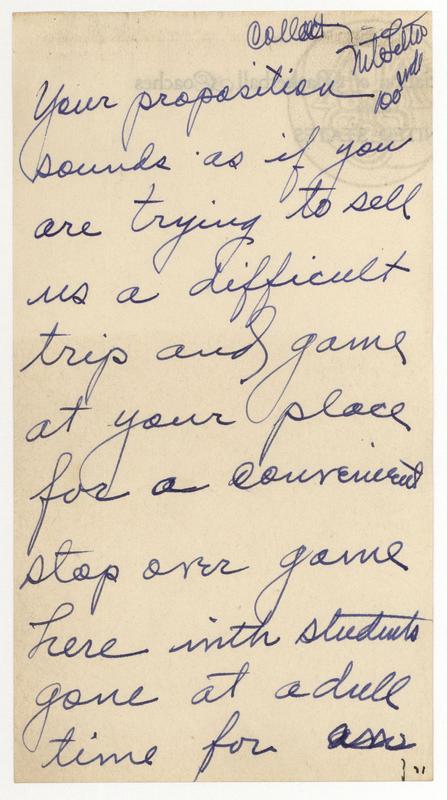 Collect
Nite Letter
100 wds
Your proposition
sounds as if you
are trying to sell
us a difficult
trip and game
at your place
for a convenient
stop over game
here with students
gone at a dull
time for